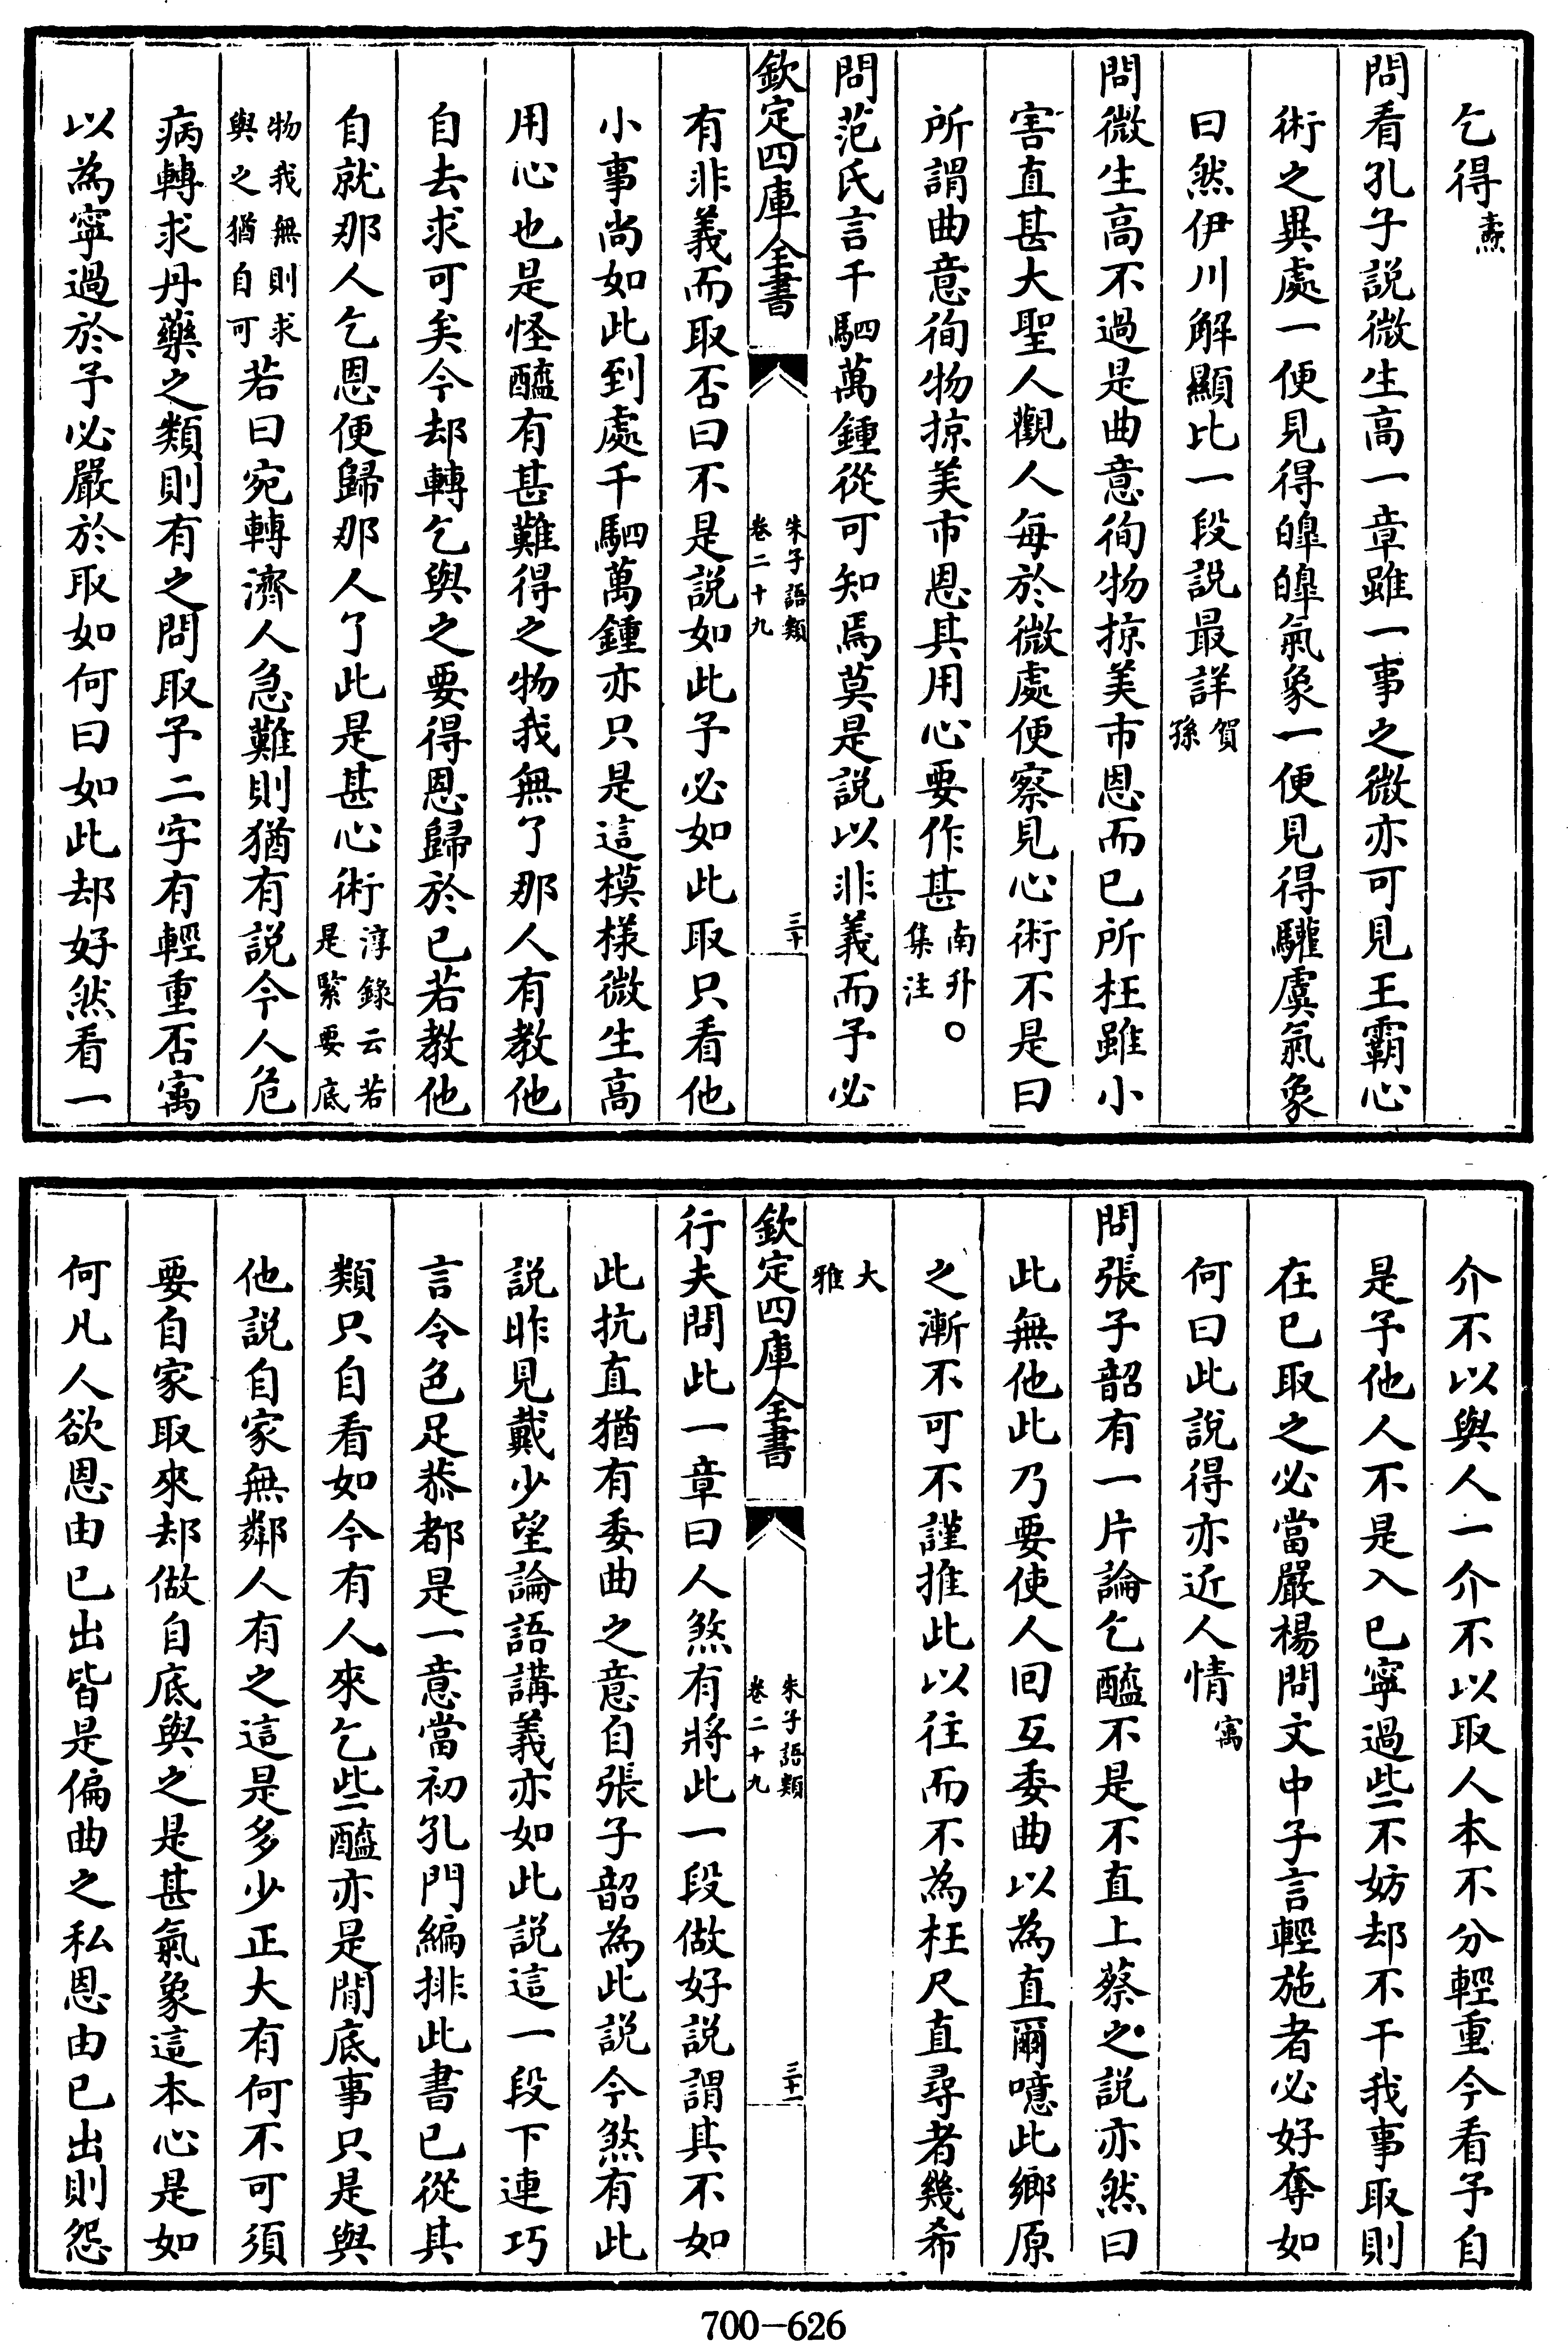 乞得燾
問看孔子說微生高一章雖一事之微亦可見王霸心
術之異處一便見得皥皥氣象一便見得驩虞氣象
曰然伊川解顯比一段說最詳賀孫
問微生高不過是曲意徇物掠美市恩而已所枉雖小
害直甚大聖人觀人每於微處便察見心術不是曰
所謂曲意徇物掠美市恩其用心要作甚南升〇集注
問范氏言千駟萬鍾從可知焉莫是說以非義而予必
欽定四庫全書
朱子語類
卷二十九
三十
有非義而取否曰不是說如此予必如此取只看他
小事尚如此到處千駟萬鍾亦只是這模様微生高
用心也是怪醯有甚難得之物我無了那人有教他
自去求可矣今却轉乞與之要得恩歸於己若教他
自就那人乞恩便歸那人了此是甚心術淳錄云若是緊要底
物我無則求與之猶自可若曰宛轉濟人急難則猶有說今人危
病轉求丹藥之類則有之問取予二字有輕重否寓
以為寧過於予必嚴於取如何曰如此却好然看一
介不以與人一介不以取人本不分輕重今看予自
是予他人不是入已寧過些不妨却不干我事取則
在已取之必當嚴楊問文中子言輕施者必好奪如
何曰此說得亦近人情寓
問張子韶有一片論乞醯不是不直上蔡之說亦然曰
此無他此乃要使人回互委曲以為直爾噫此鄉原
之漸不可不謹推此以往而不為枉尺直尋者幾希
大雅
欽定四庫全書
朱子語類
卷二十九
三十一
行夫問此一章曰人煞有將此一段做好說謂其不如
此抗直猶有委曲之意自張子韶為此說今煞有此
說昨見戴少望論語講義亦如此說這一段下連巧
言令色足恭都是一意當初孔門編排此書已從其
類只自看如今有人來乞些醯亦是閒底事只是與
他說自家無鄰人有之這是多少正大有何不可須
要自家取來却做自底與之是甚氣象這本心是如
何凡人欲恩由已出皆是偏曲之私恩由已出則怨
700-626